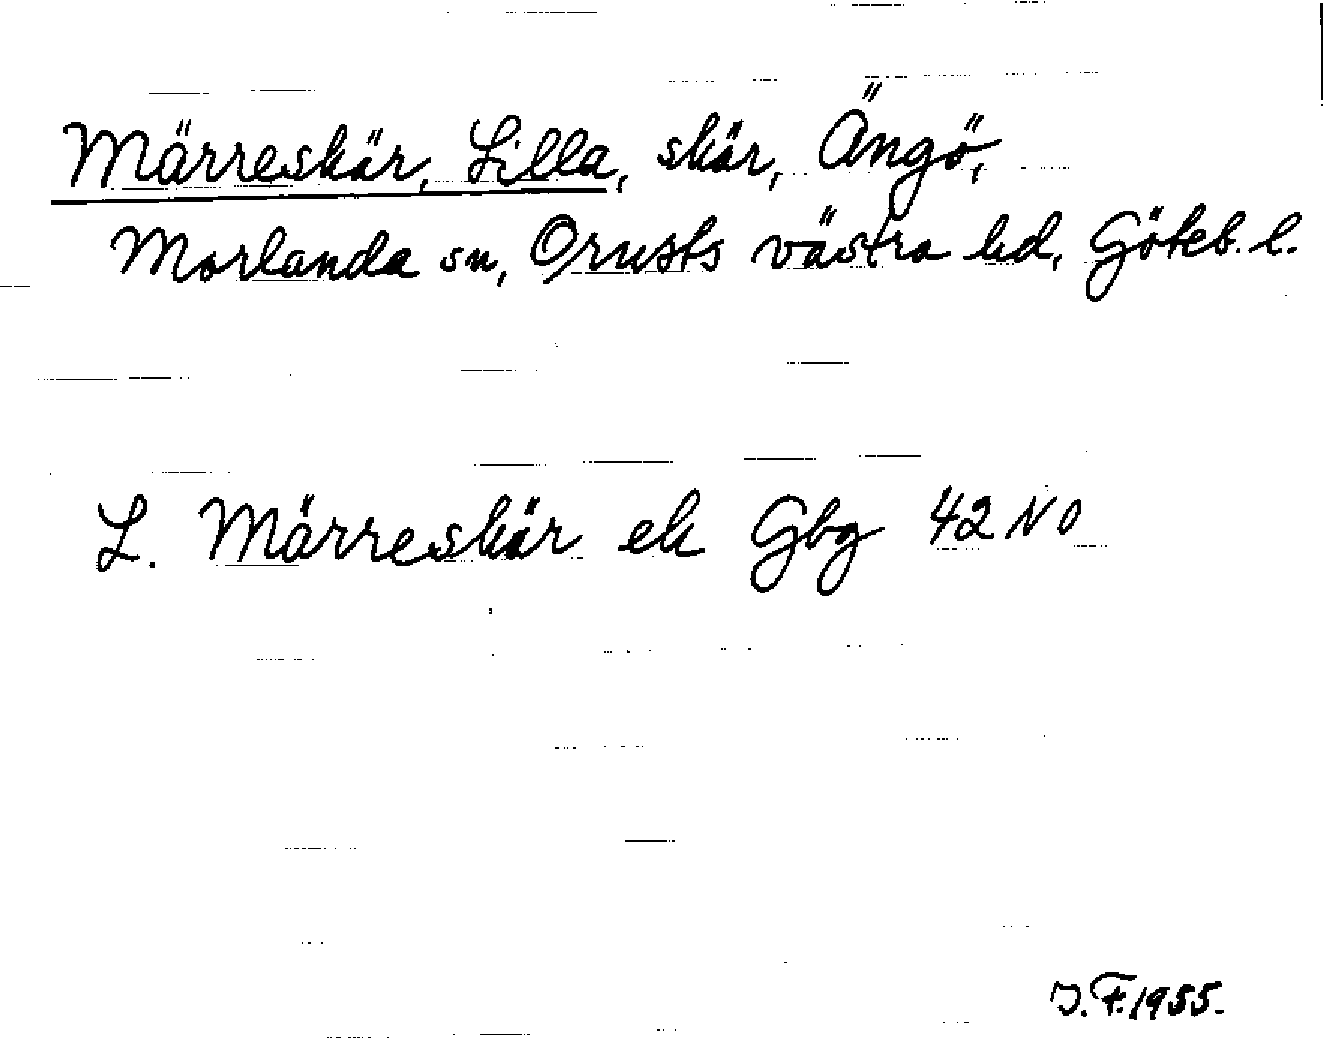 Märreskär, Lilla, skär, Ängö,
Morlanda sn, Orusts västra hd, Göteb. l.
L. Märreskär ek Gbg 42 NO
J. F. 1955.